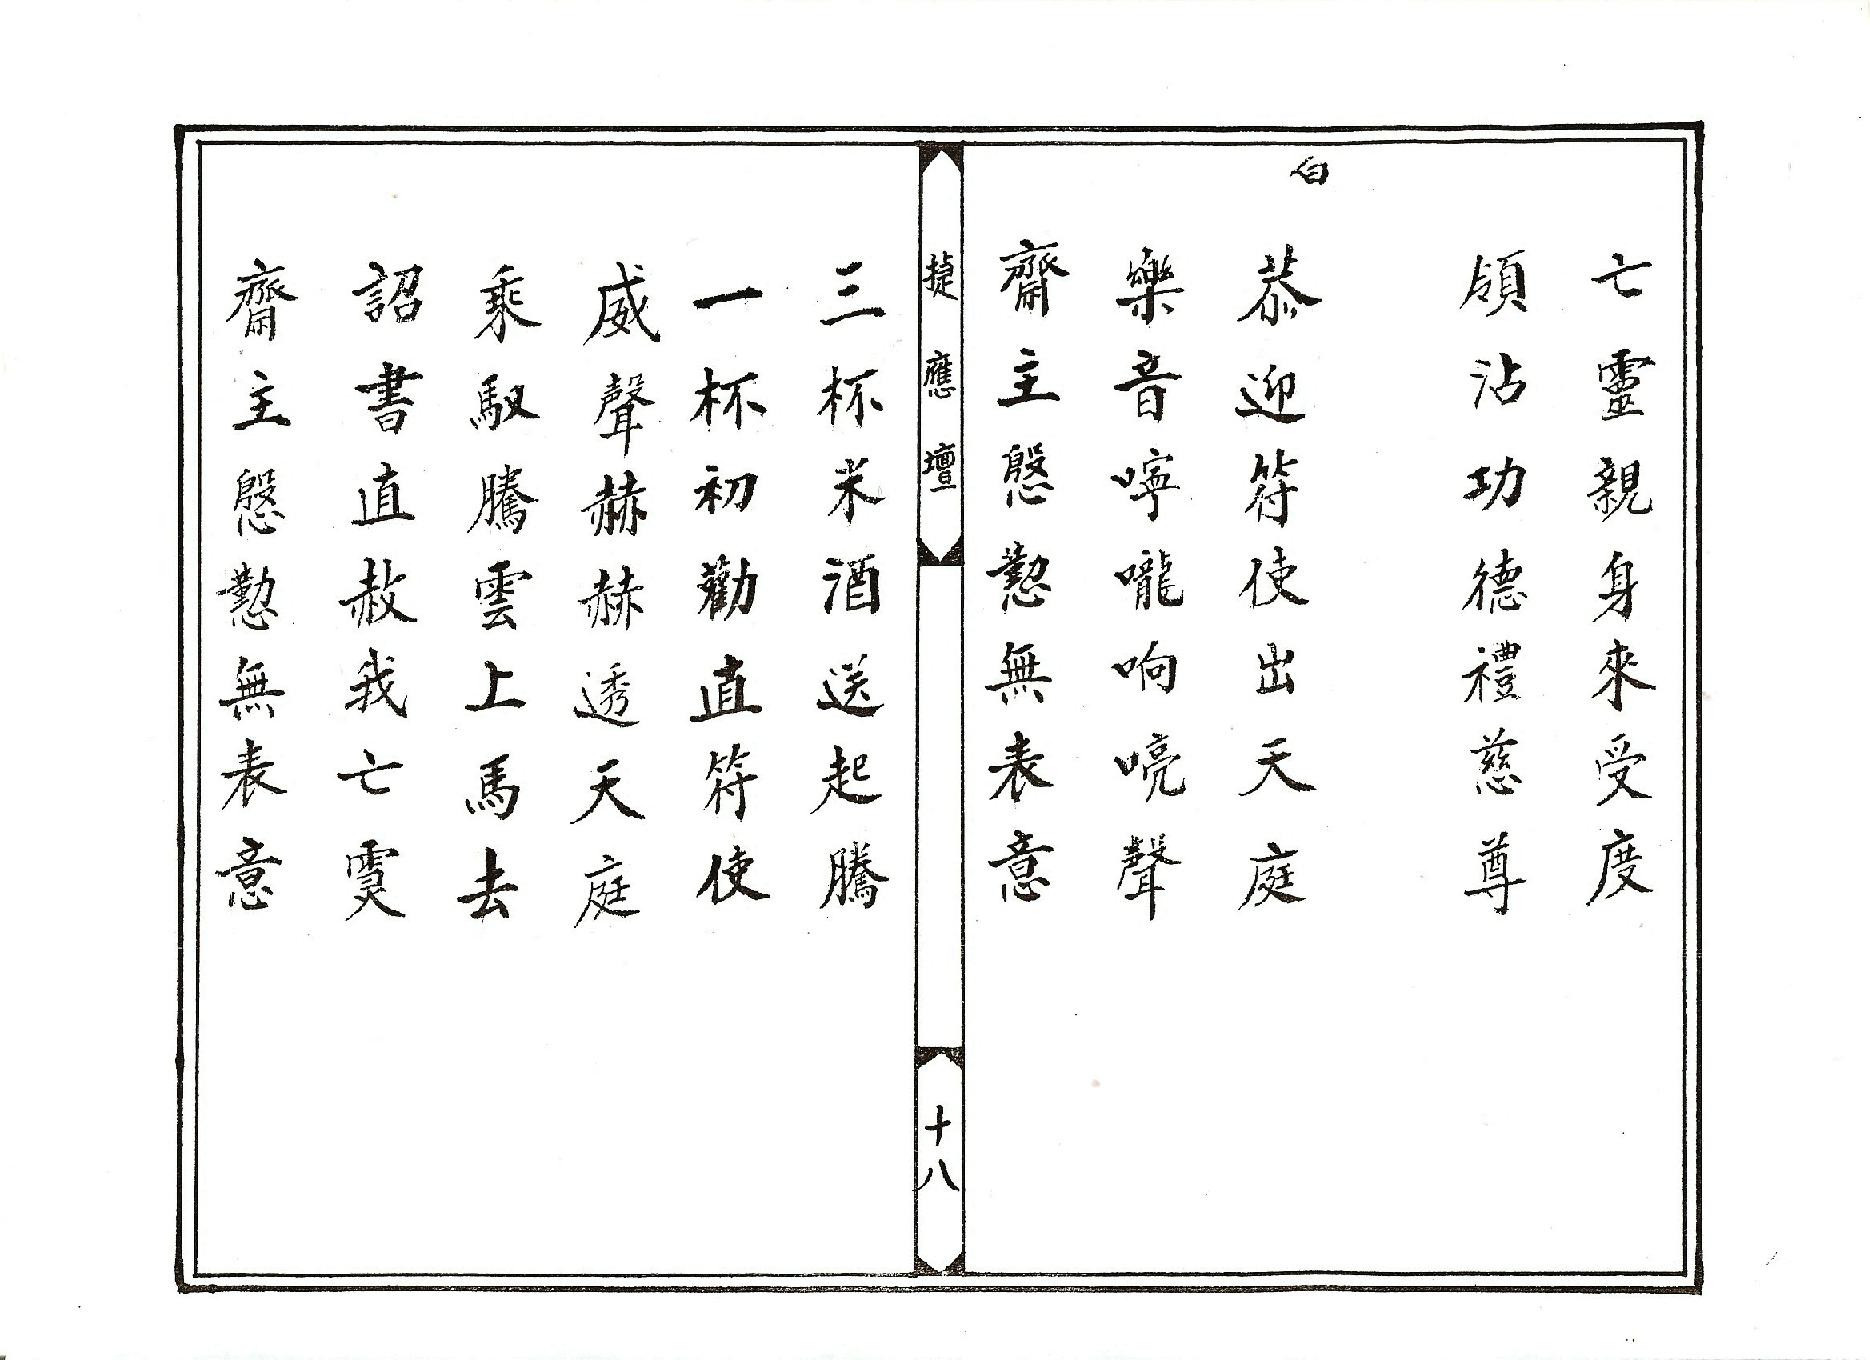 亡靈親身來受度
領沾功德禮慈尊
白
恭迎符使出天庭
樂音嚀嚨响喨聲
齋主慇懃無表意
捷應壇
十八
三杯米酒送起騰
一杯初勸直符使
威聲赫赫透天庭
乘馭騰雲上馬去
詔書直赦我亡霛
齋主慇懃無表意